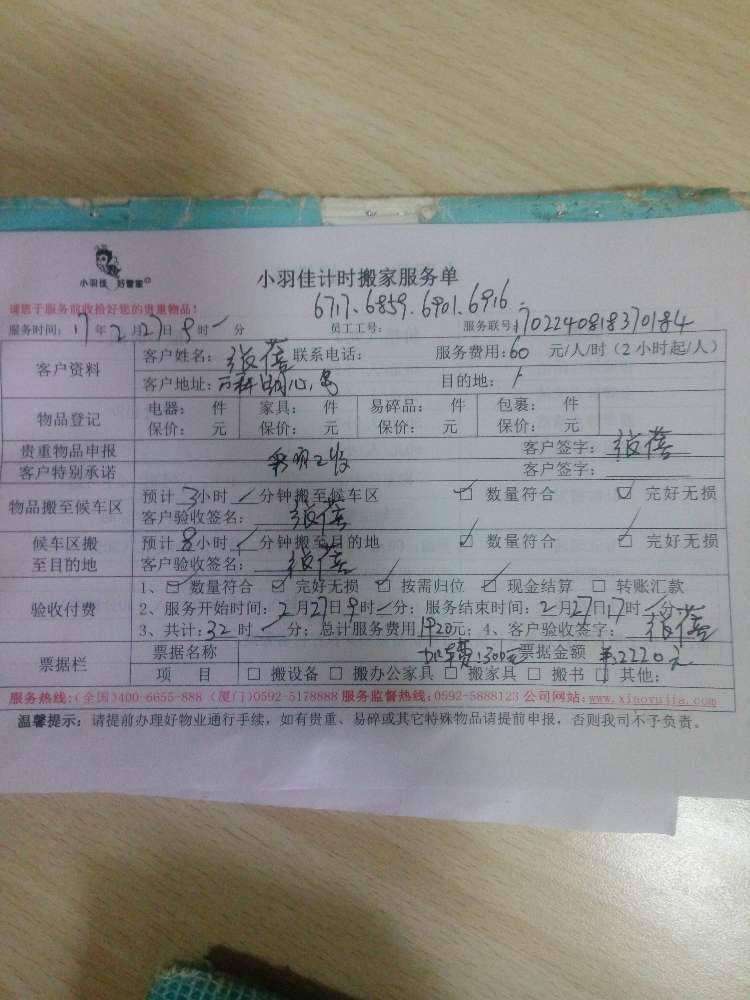 小羽佳 好管家
小羽佳计时搬家服务单
请您于服务前收拾好您的贵重物品！
6717.6859.6901.6916
服务时间：17年2月27日9时 分 员工工号： 服务联号：1702240818370184
客户资料
客户姓名：张蓓 联系电话： 服务费用：60 元/人/时（2小时起/人）
客户地址：万科湖心岛 目的地：
物品登记
电器： 件 家具： 件 易碎品： 件 包裹： 件
保价： 元 保价： 元 保价： 元 保价： 元
贵重物品申报 客户签字：张蓓
客户特别承诺 客户签字：
物品搬至候车区
预计3小时 分钟搬至候车区 数量符合 完好无损
客户验收签名：张蓓
候车区搬至目的地
预计8小时 分钟搬至目的地 数量符合 完好无损
客户验收签名：张蓓
验收付费
1、数量符合 完好无损 按需归位 现金结算 转账汇款
2、服务开始时间：2月27日9时 分；服务结束时间：2月27日17时 分
3、共计：32时 分；总计服务费用1920元；4、客户验收签字：张蓓
票据栏
票据名称 300元 票据金额 2220元
项 目 搬设备 搬办公家具 搬家具 搬书 其他：
服务热线：（全国）400-6655-888（厦门）0592-5178888 服务监督热线：0592-5888123 公司网站：www.xiaoyujia.com
温馨提示：请提前办理好物业通行手续，如有贵重、易碎或其它特殊物品请提前申报，否则我司不予负责。